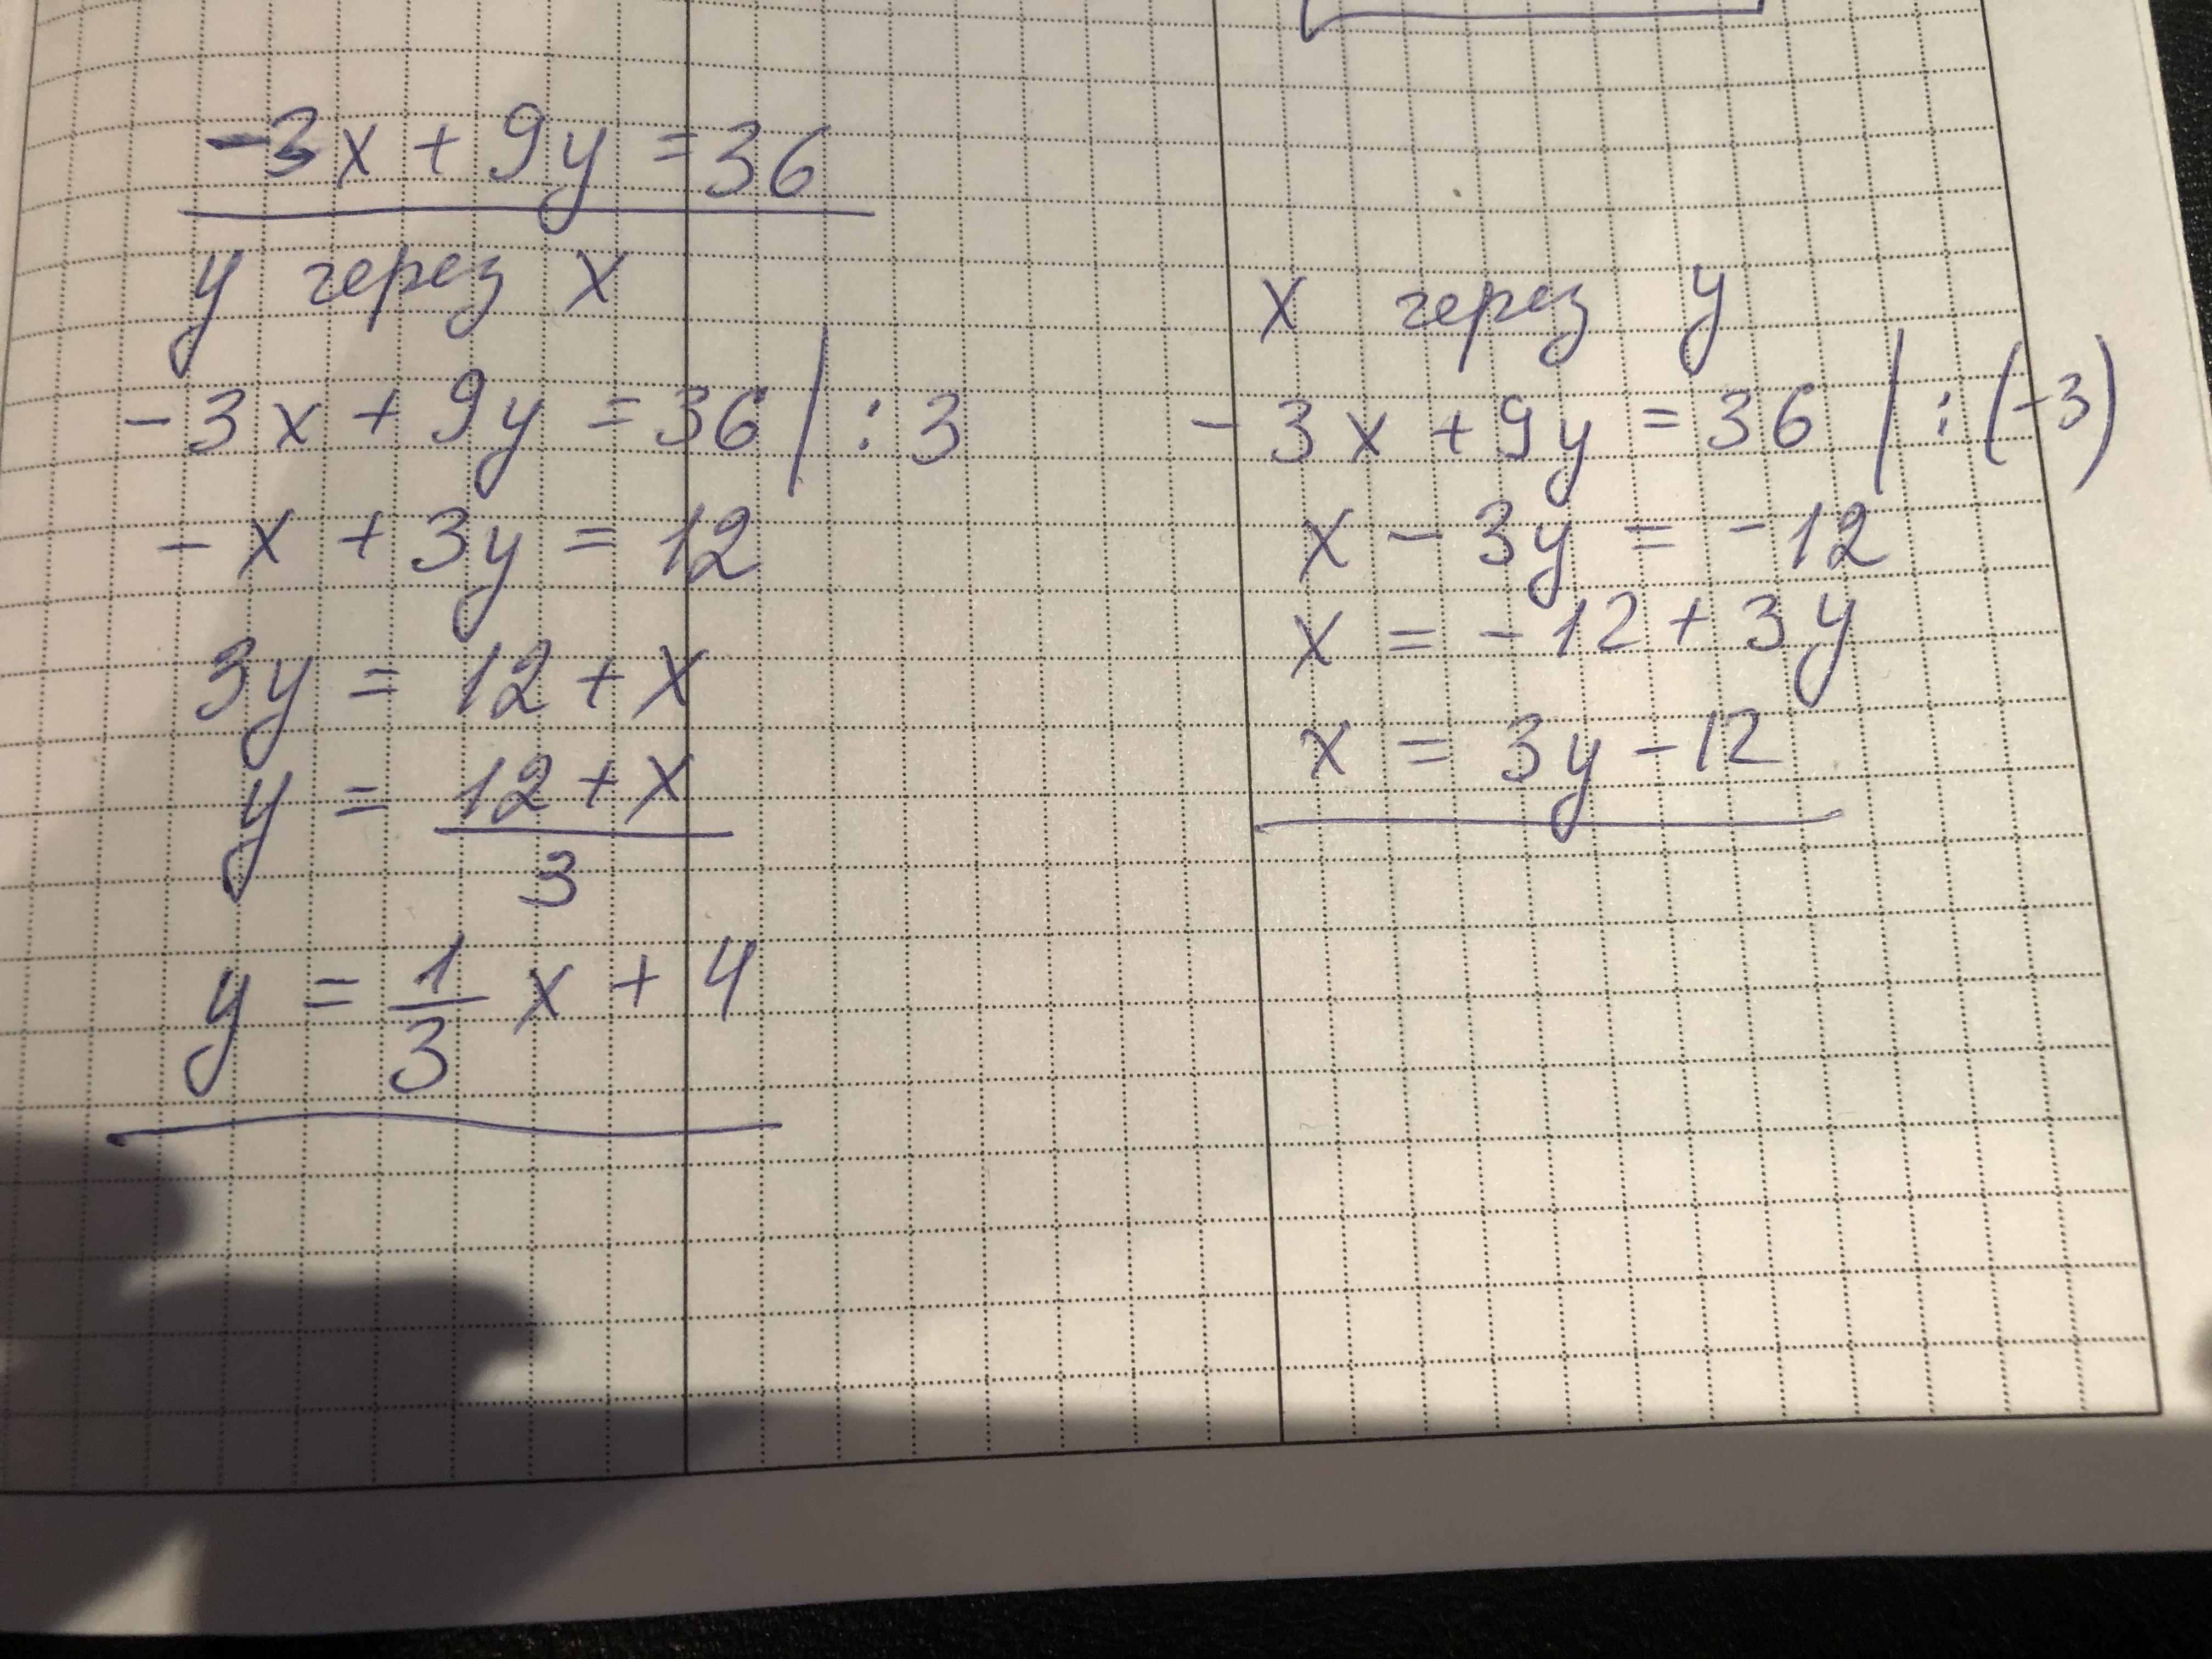 -3x + 9y = 36
y через x
-3x + 9y = 36 | : 3
-x + 3y = 12
3y = 12 + x
y = \frac{12 + x}{3}
y = \frac{1}{3} x + 4
x через y
-3x + 9y = 36 | : (-3)
x - 3y = -12
x = -12 + 3y
x = 3y - 12